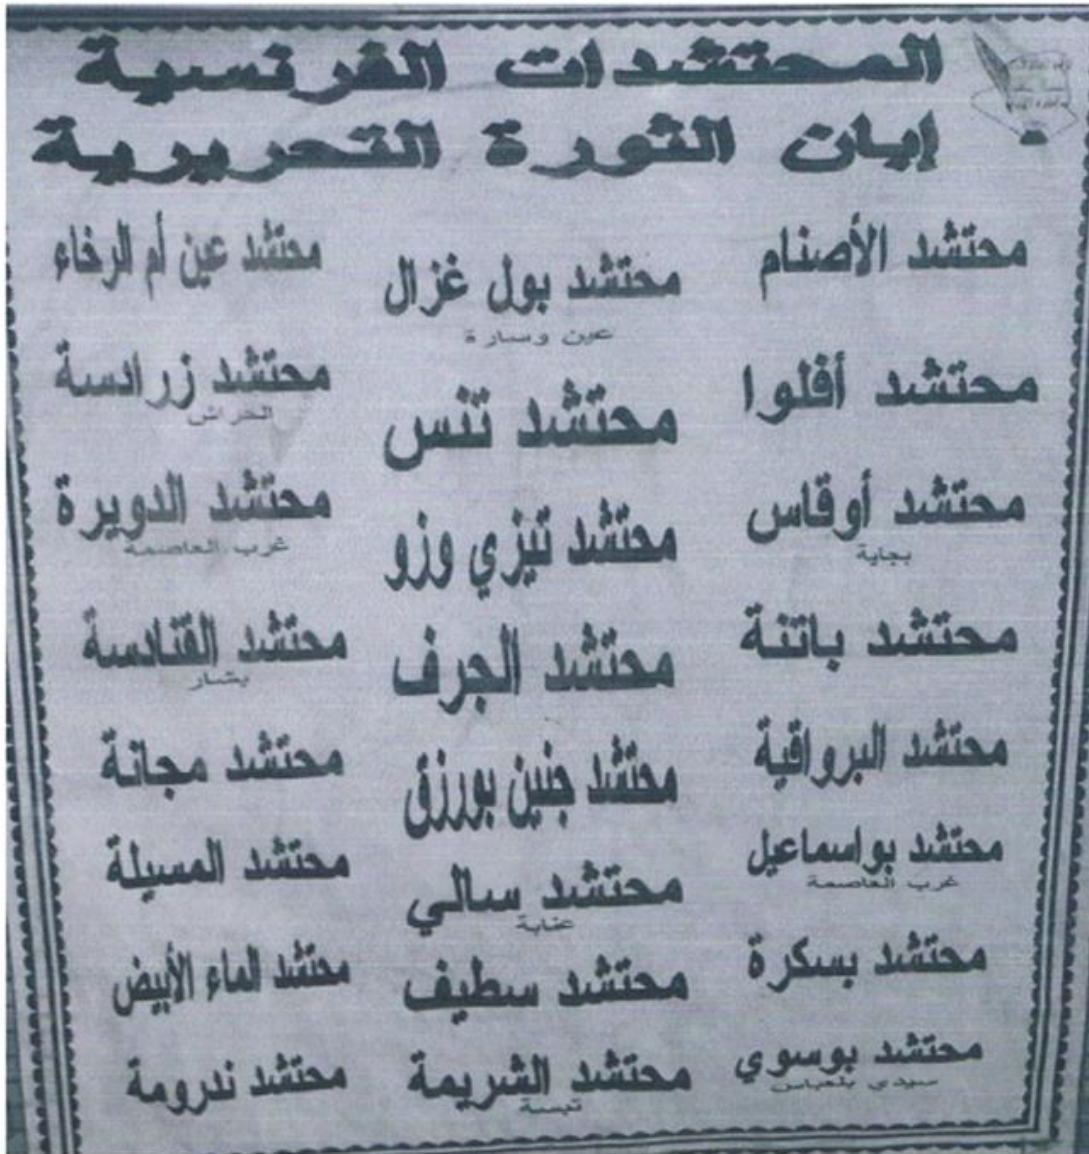 المحتشدات الفرنسية
إبان الثورة التحريرية -
محتشد الأصنام
محتشد أفلوا
محتشد أوقاس
بجاية
محتشد باتنة
محتشد البرواقية
محتشد بواسماعيل
غرب العاصمة
محتشد بسكرة
محتشد بوسوي
سيدي بلعباس
محتشد بول غزال
عين وسارة
محتشد تنس
محتشد تيزي وزو
محتشد الجرف
محتشد جنين بورزق
محتشد سالي
عنابة
محتشد سطيف
محتشد الشريمة
تبسة
محتشد عين أم الرخاء
محتشد زرادسة
الحراش
محتشد الدويرة
غرب العاصمة
محتشد القنادسة
بشار
محتشد مجانة
محتشد المسيلة
محتشد الماء الأبيض
محتشد ندرومة